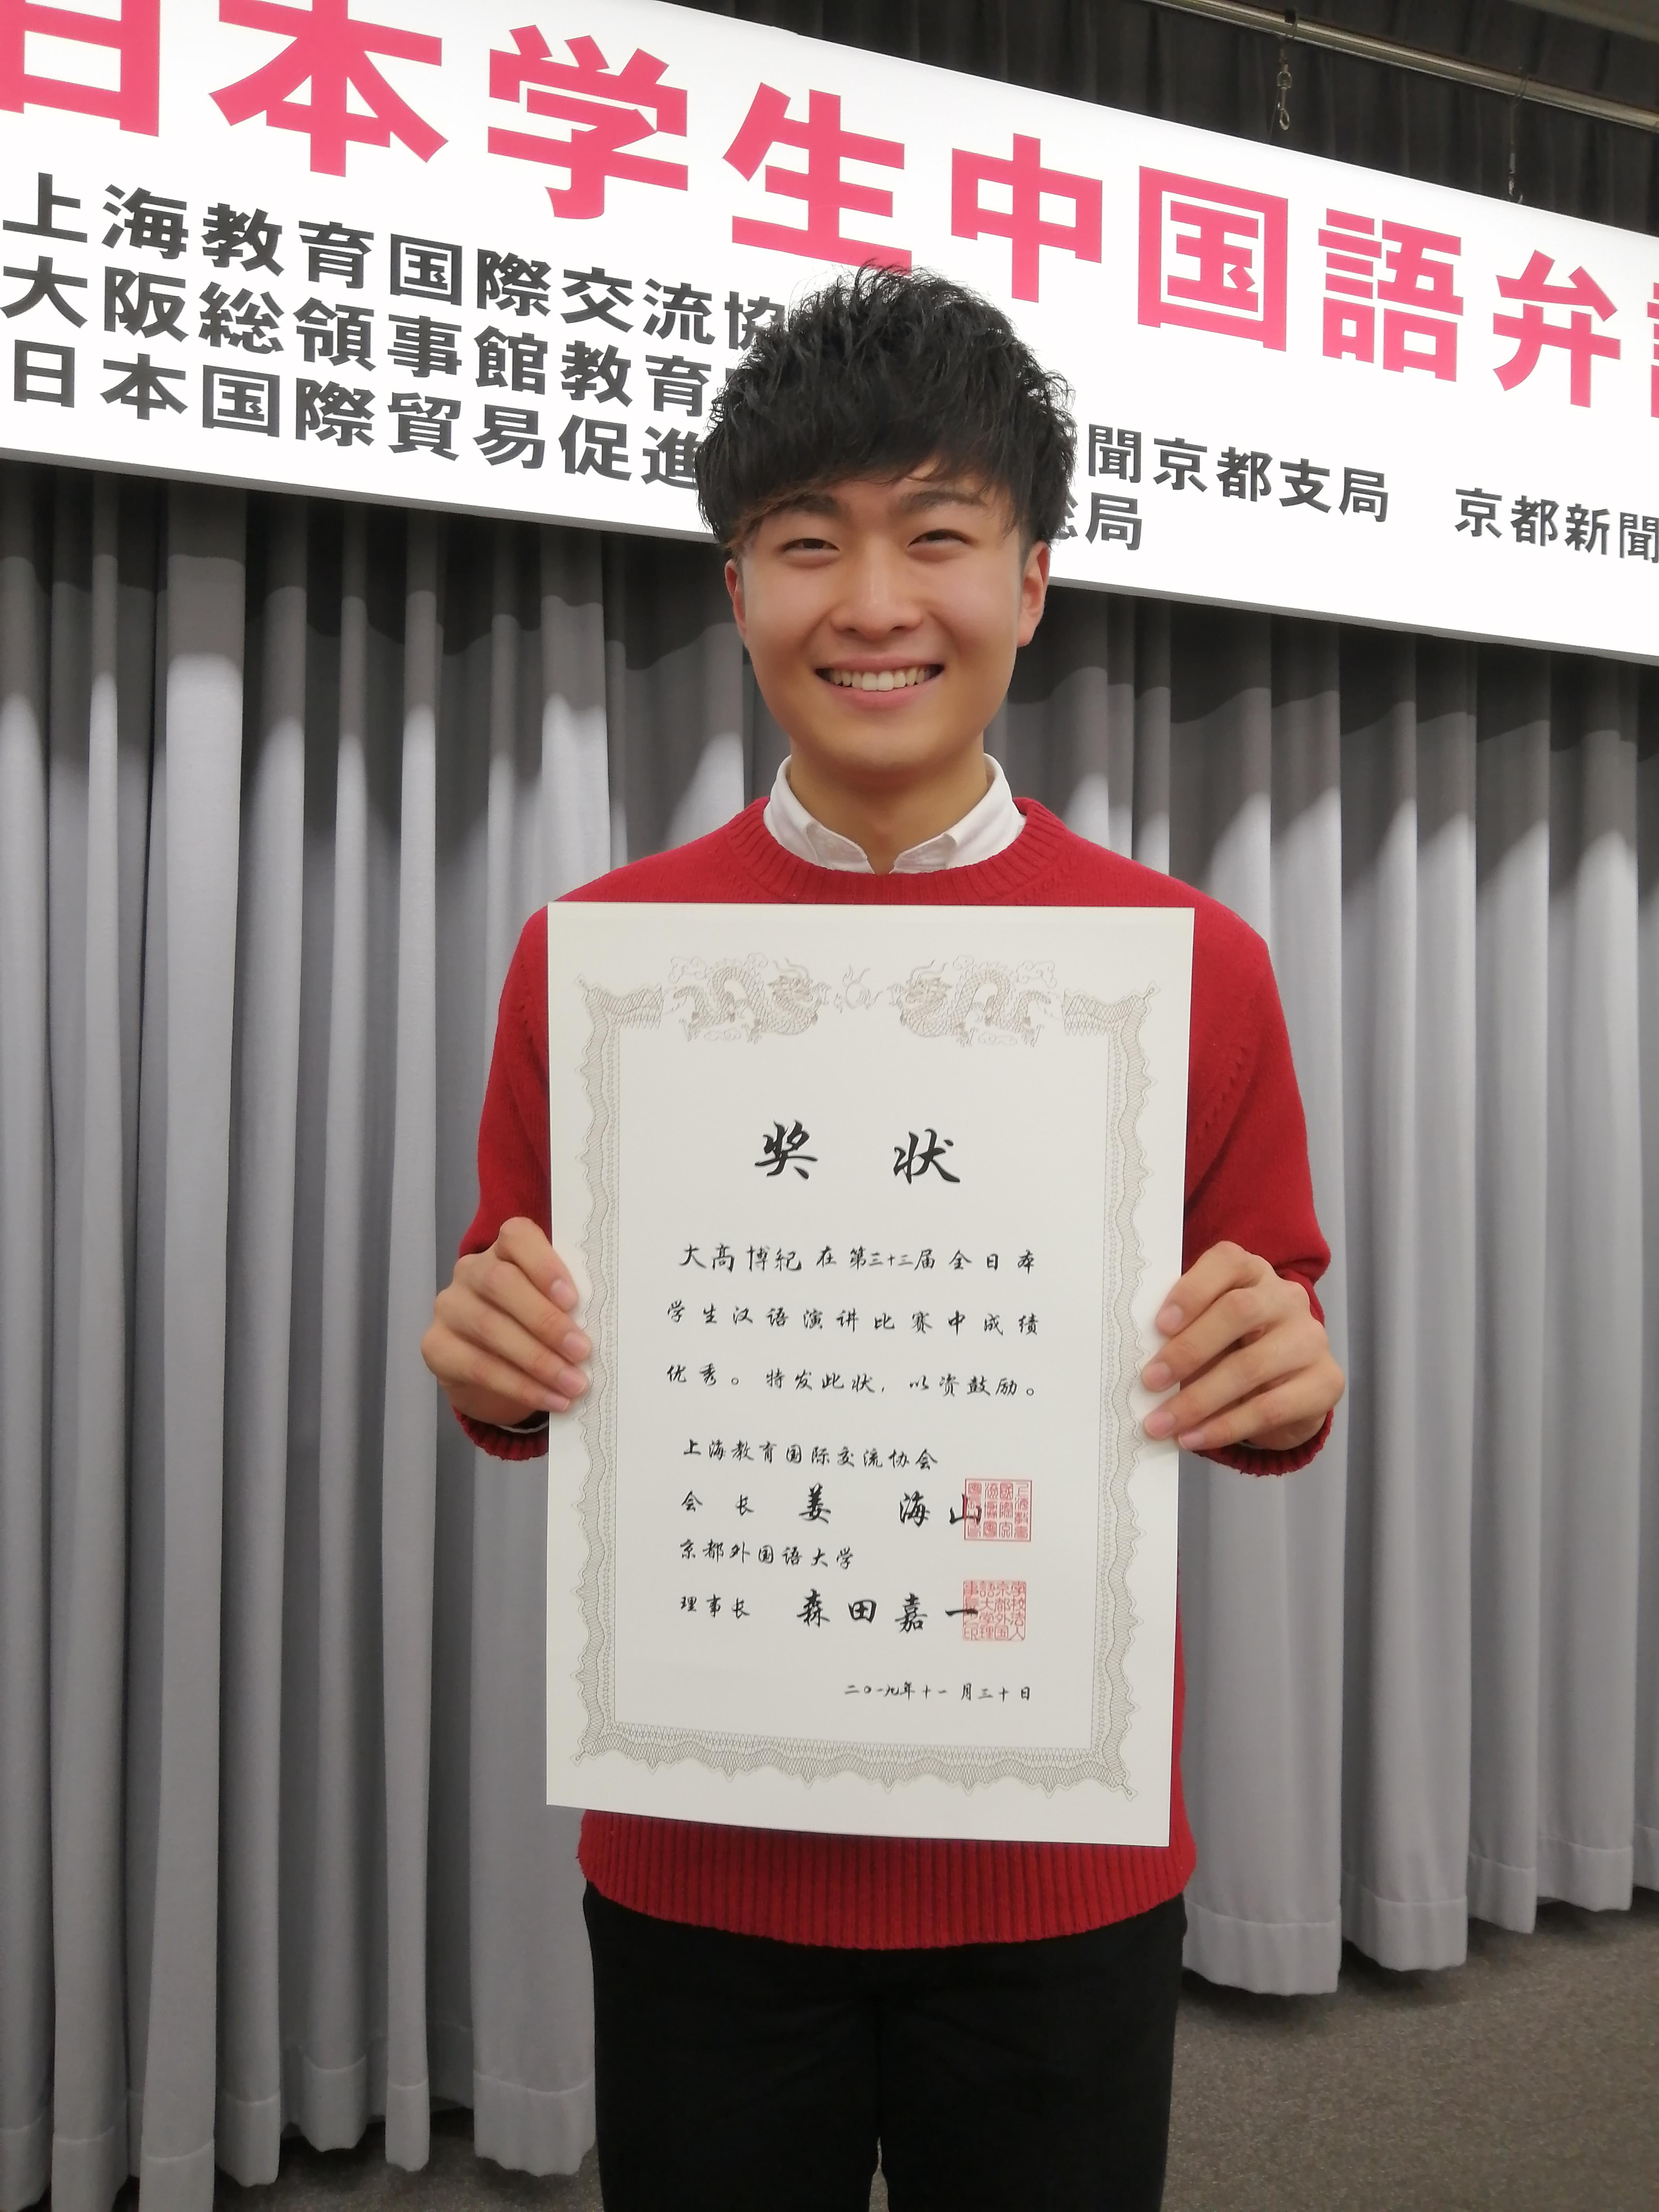 日本学生中国語弁
上海教育国際交流協
大阪総領事館教育
日本国際貿易促進
聞京都支局 京都新聞
総局
奖状
大高博紀在第三十三届全日本
学生汉语演讲比赛中成绩
优秀。特发此状，以资鼓励。
上海教育国际交流协会
会长 姜海山
京都外国语大学
理事长 森田嘉一
学校法人京都外国語大学理事長之印
二〇一九年十一月三十日